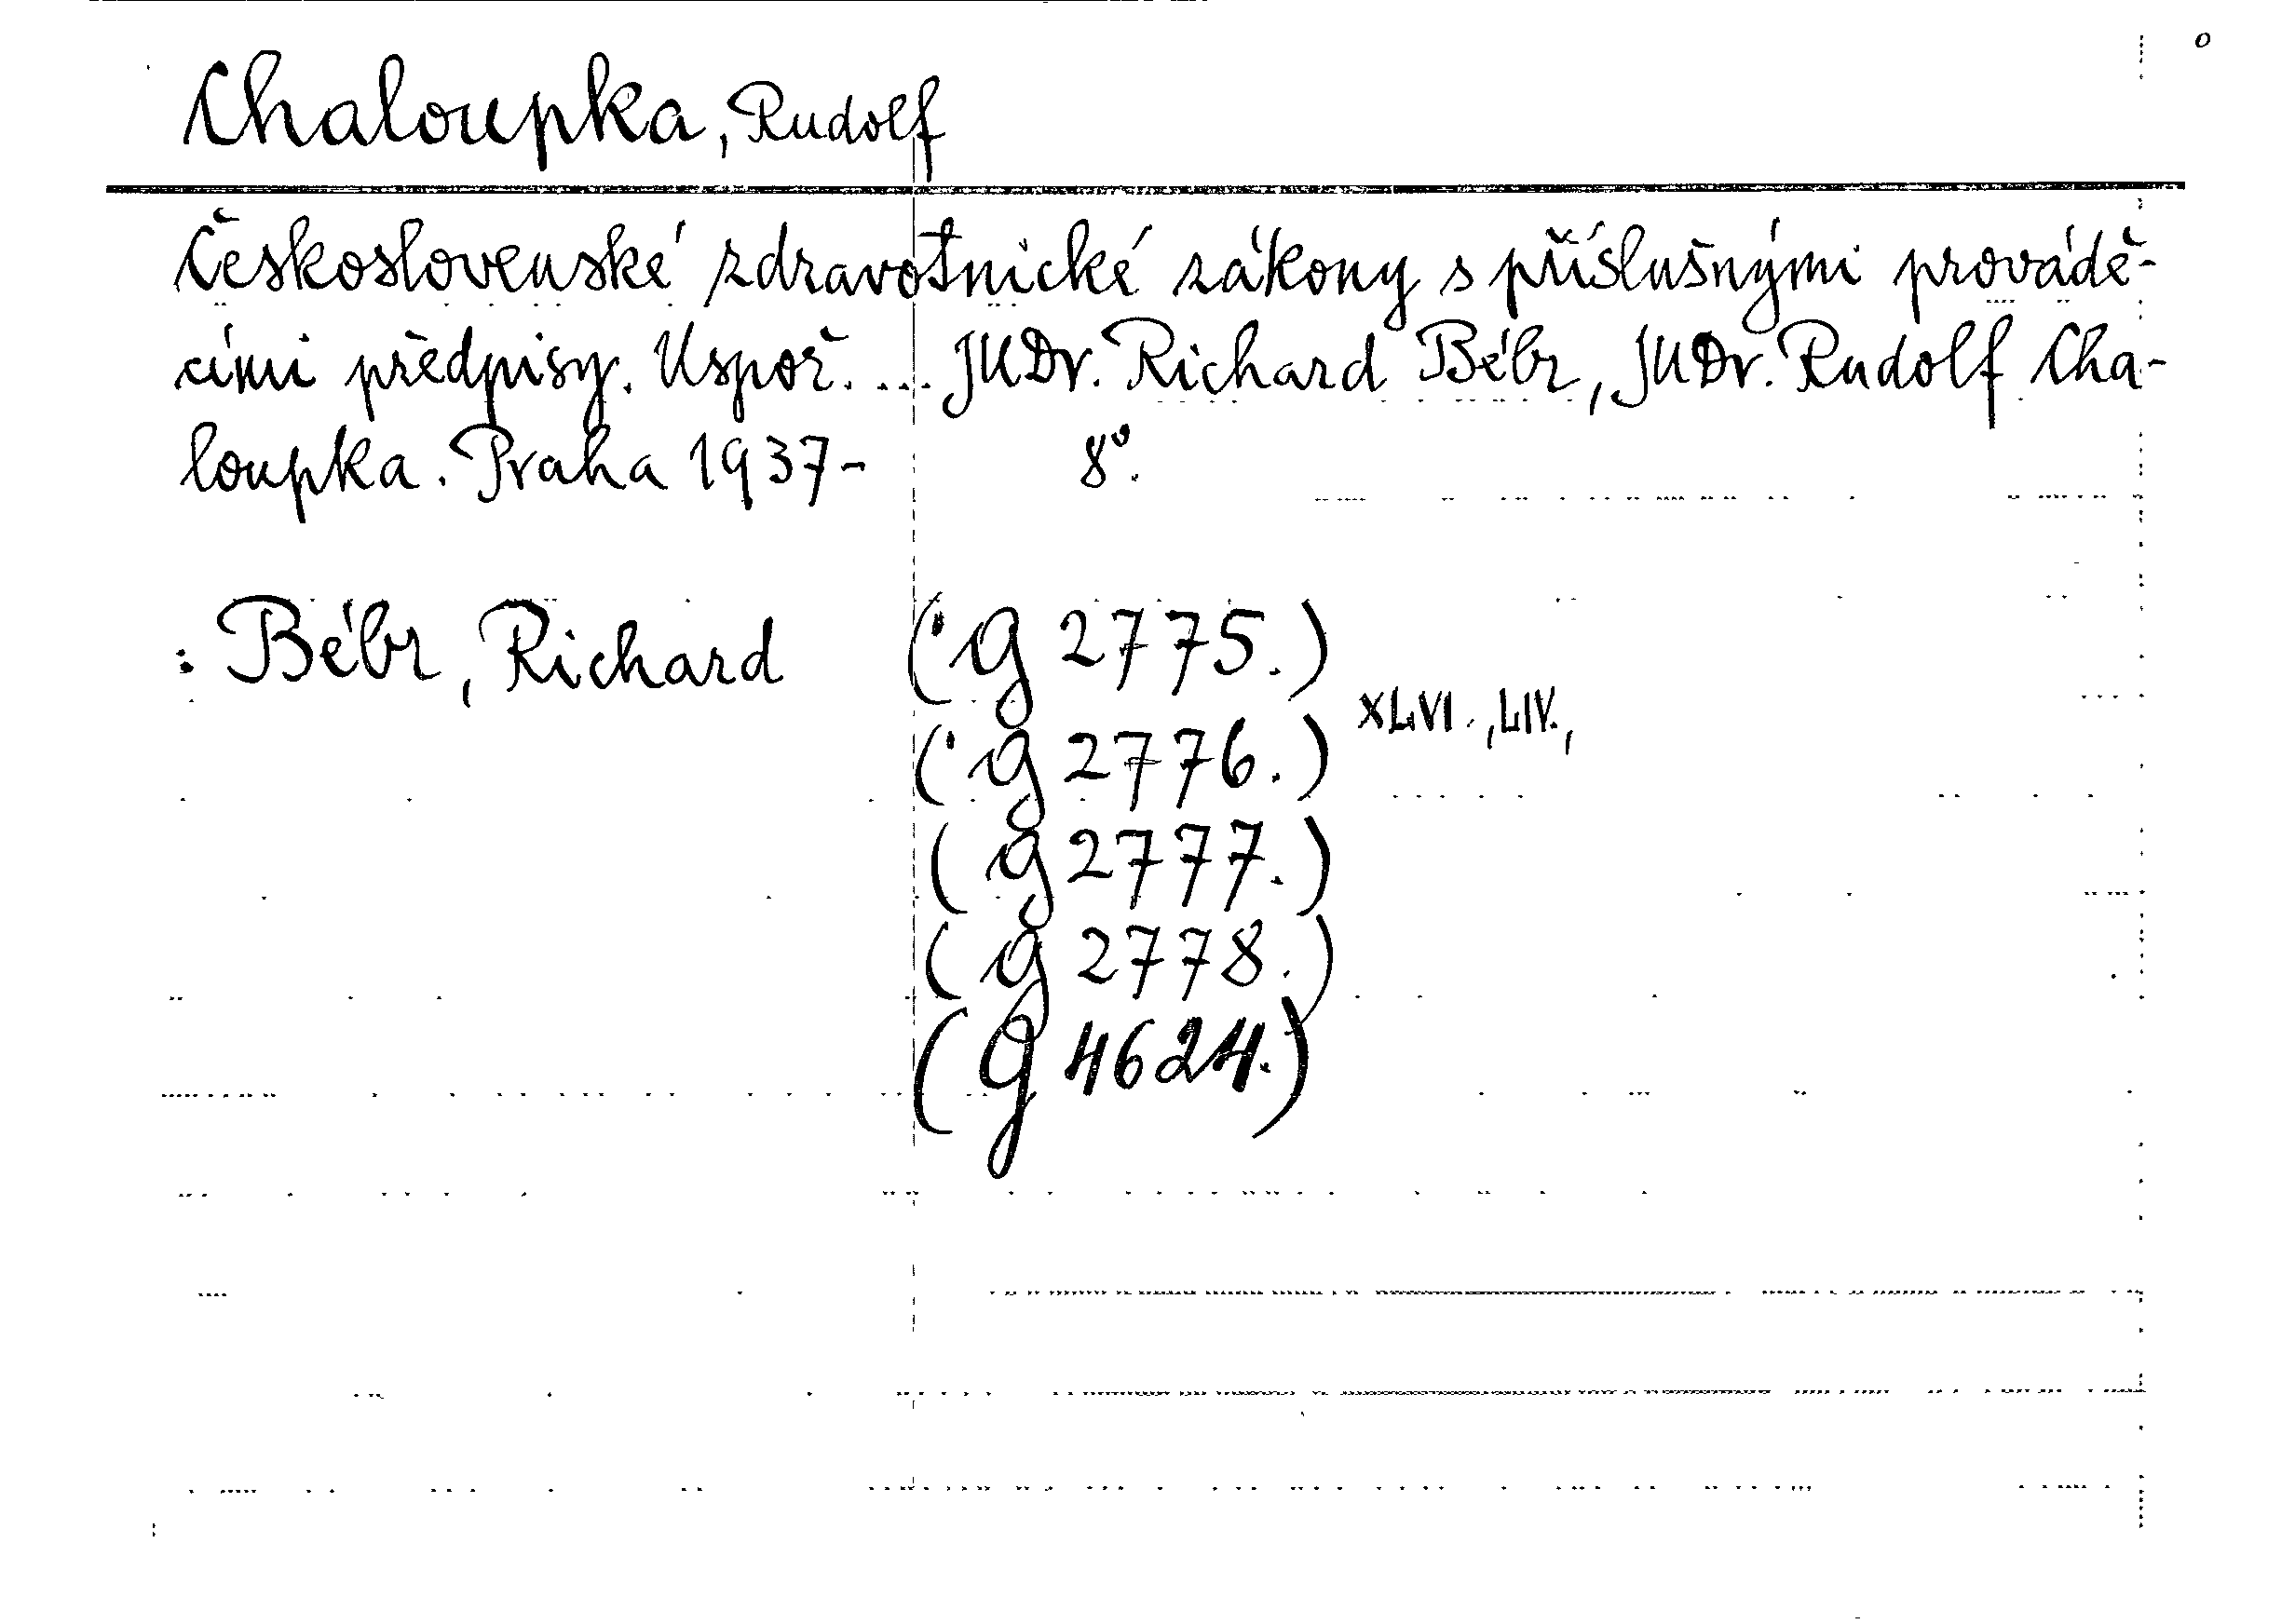 Chaloupka, Rudolf
Československé zdravotnické zákony s příslušnými provádě-
cími předpisy. Uspoř. ... JUDr. Richard Bébr, JUDr. Rudolf Cha-
loupka. Praha 1937- 8°.
: Bébr, Richard (g 2775.)
XLVI., LIV.,
(g 2776.)
(g 2777.)
(g 2778.)
(g 4624.)